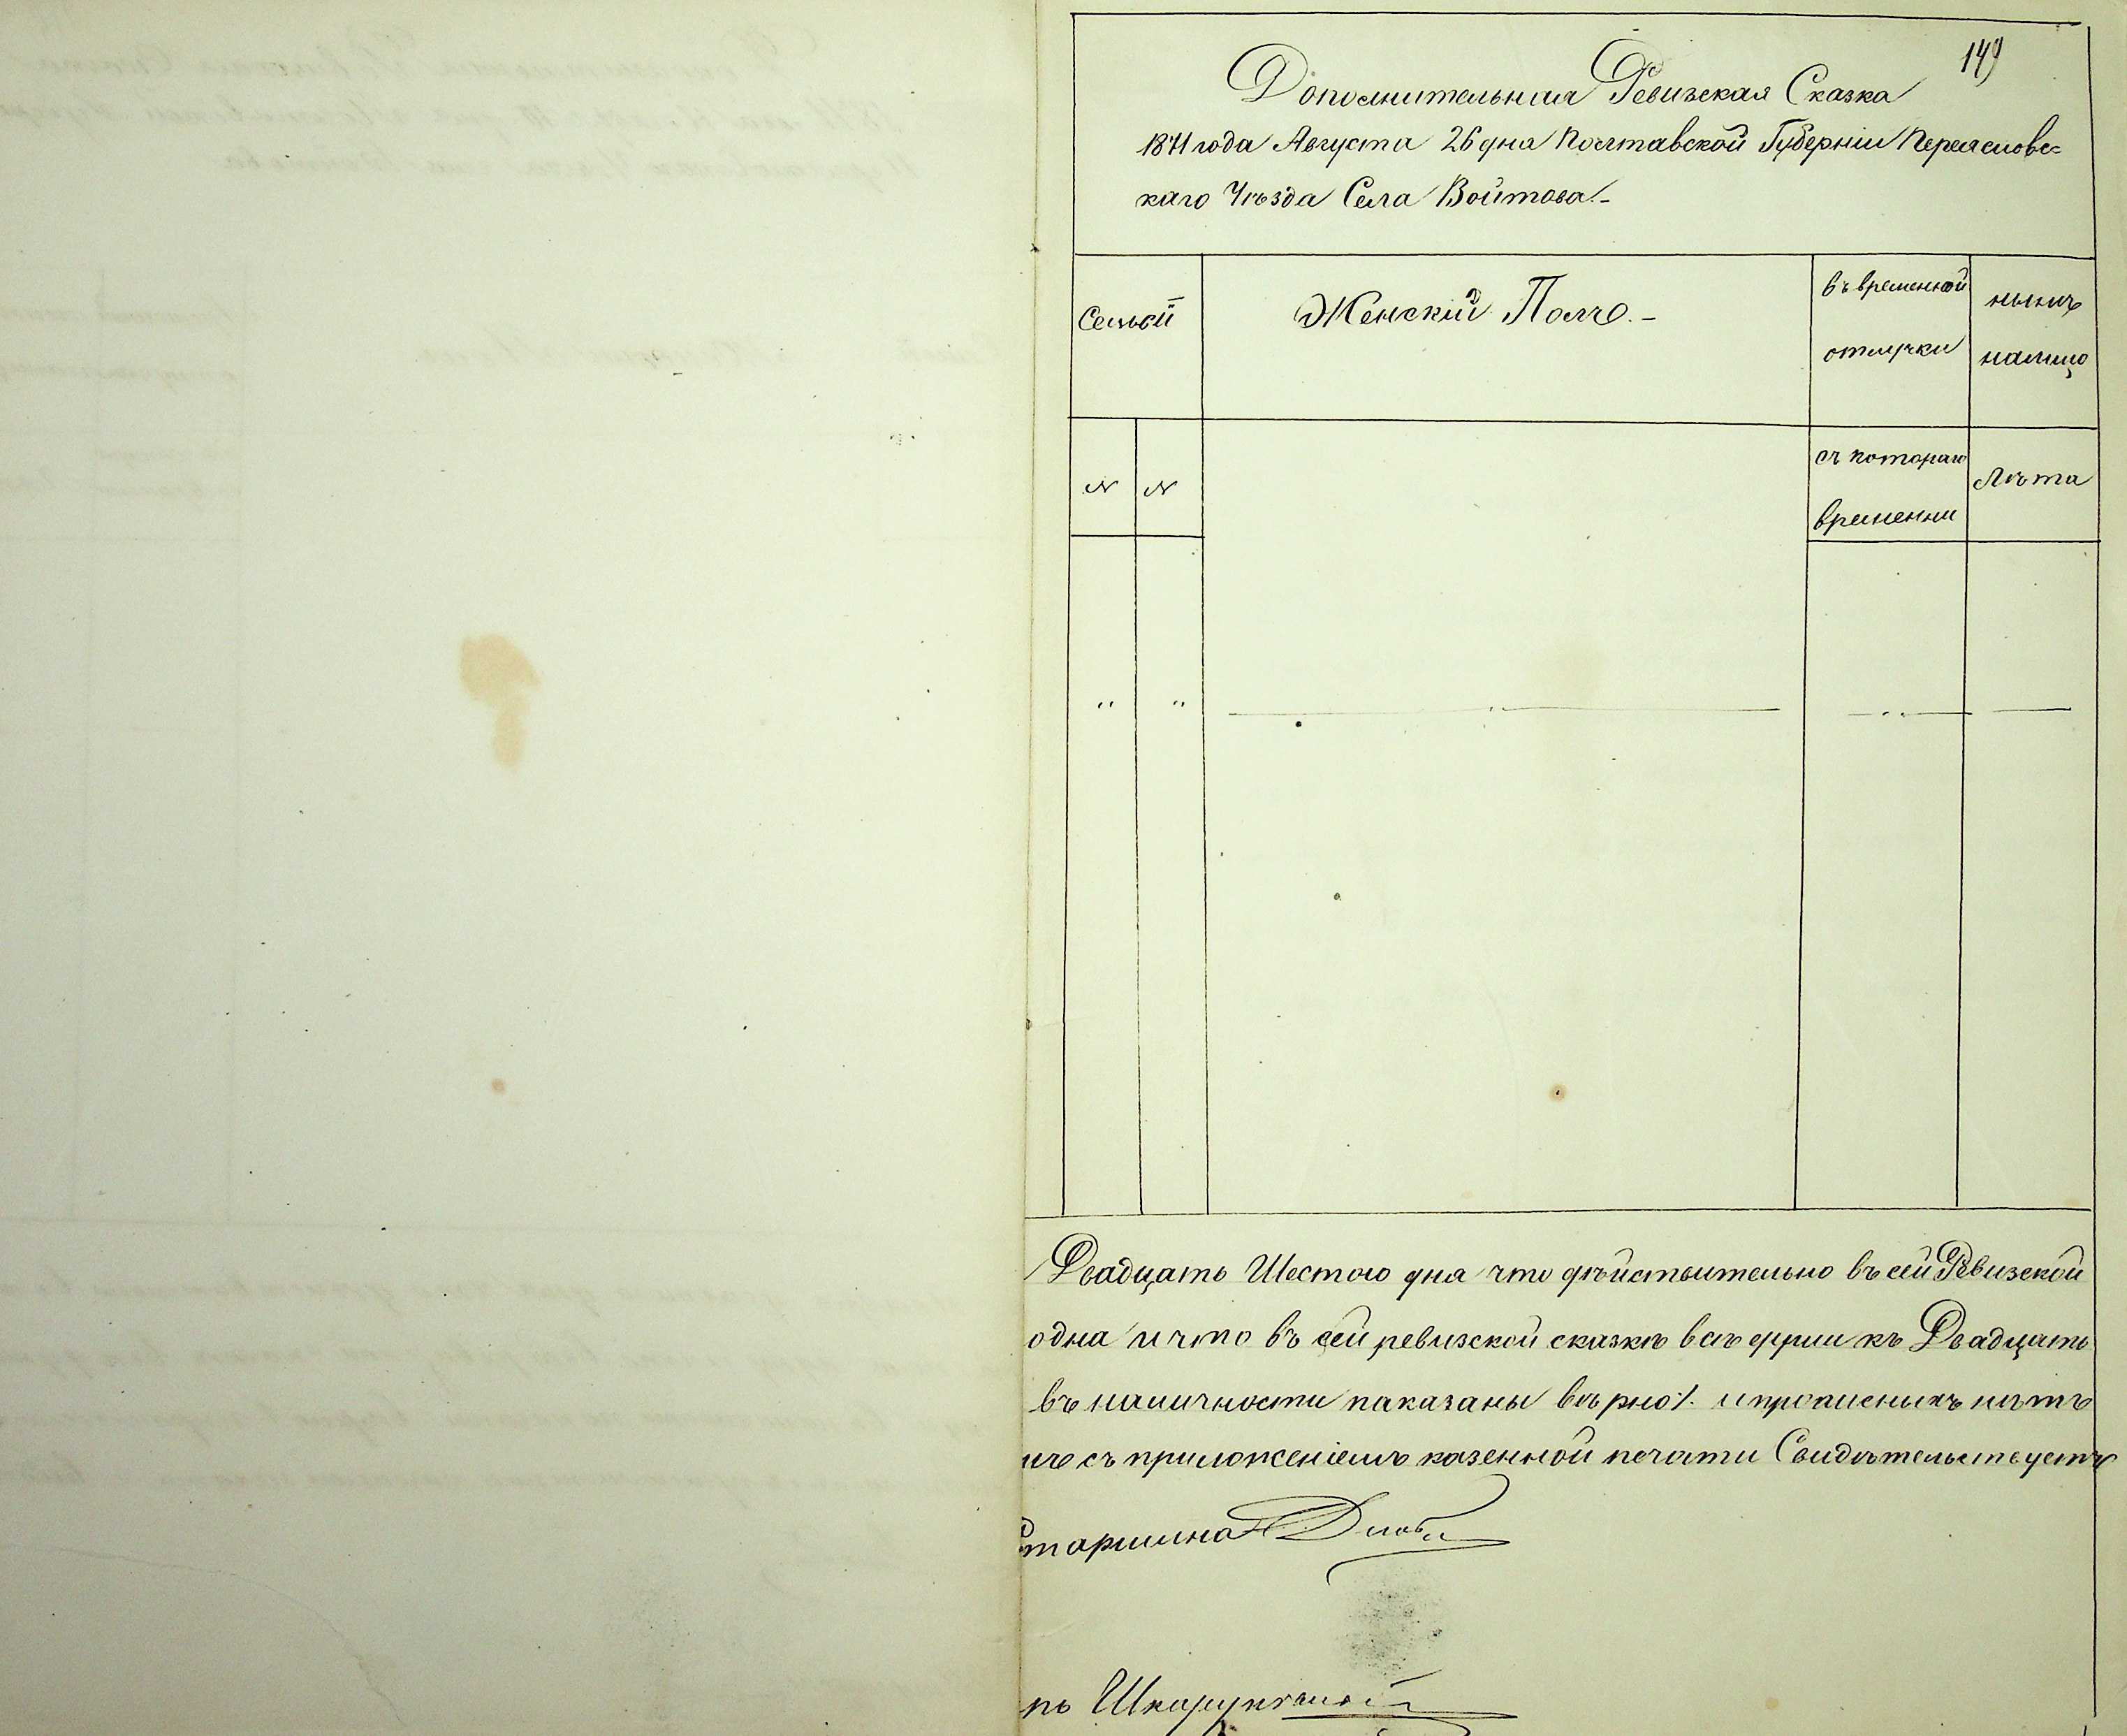 149
Дополнительная Ревизская Сказка
1871 года Августа 26 дня Полтавской Губерніи Переяслове-
каго Уѣзда Села Войтова.-
Семьи
Женскій Полъ.-
въ временной
отлучки
нынѣ
налицо
№ №
съ котораго
времени
Лѣта
" "
Двадцать Шестого дня что дѣйствительно въ сей Ревизской
одна и что въ сей ревизской сказкѣ всѣ души къ Двадцать
въ наличности паказаны вѣрно ⁒. и прописныхъ нѣтъ
съ приложеніемъ казенной печати Свидѣтельствуетъ
таршина